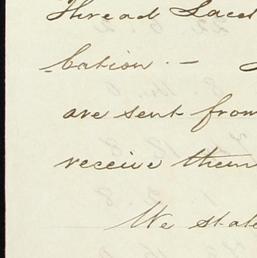 Thread Lace
bation. —
are sent from
receive them
We state